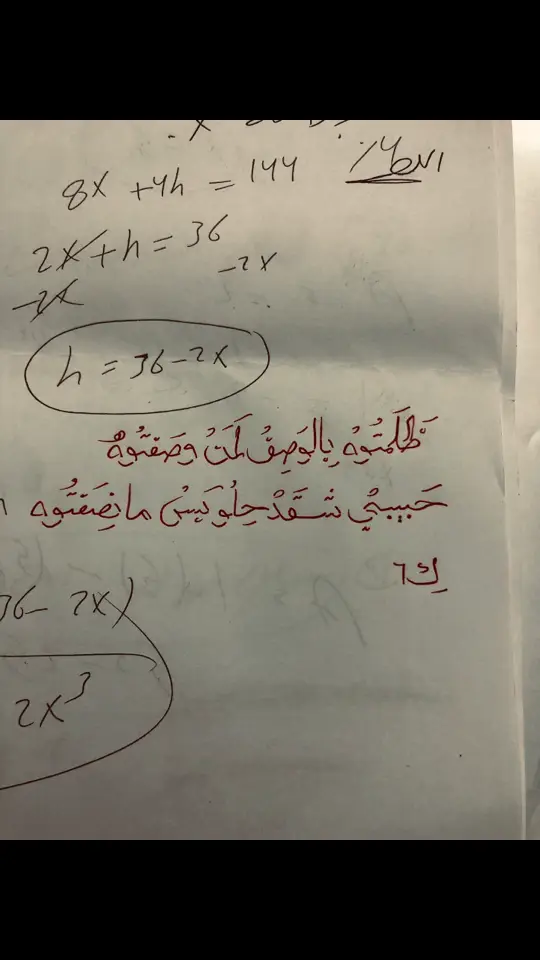 8x + 4h = 144
2x + h = 36
-2x -2x
h = 36 - 2x
ظَلَمتُوهْ بِالوَصِفْ لَمَنْ وِصَفتُوهْ
حَبيبتْي شـقَدْ حِلو بَسْ مانِصَفتُوه
36 - 2x)
2x³